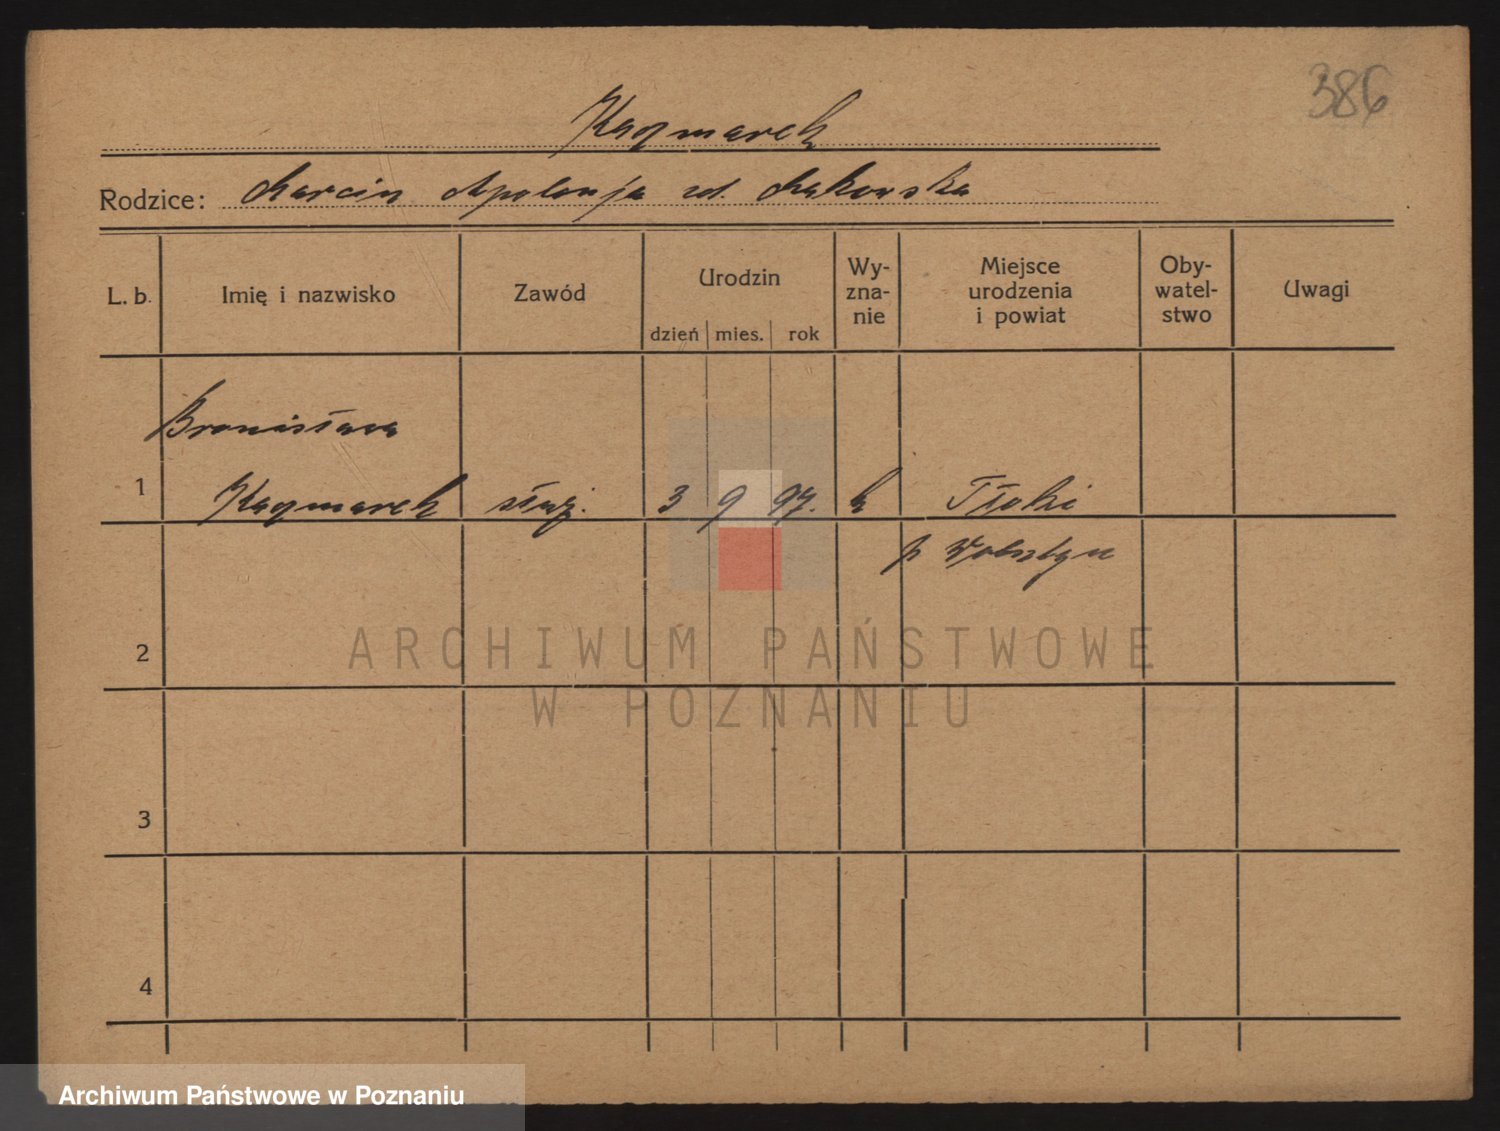 386
Kaczmarek
Rodzice: Marcin Apolonja zd. Makowska
L. b. Imię i nazwisko Zawód Urodzin dzień mies. rok Wy-zna-nie Miejsce urodzenia i powiat Oby-watel-stwo Uwagi
Bronisława
1 Kaczmarek służ. 3 9 97. k Tłoki
p Wolsztyn
2
3
4
ARCHIWUM PAŃSTWOWE
W POZNANIU
Archiwum Państwowe w Poznaniu